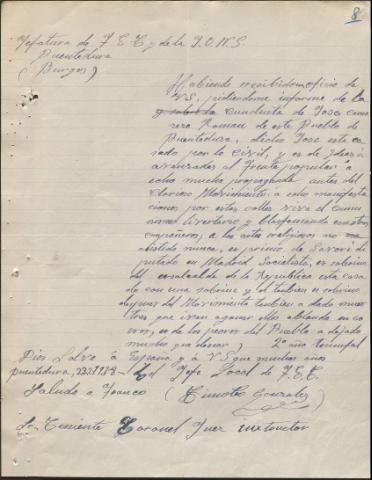 8
Jefatura de F E T y de la J.O.N.S.
Puentedura
(Burgos)
Habiendo recibido oficio de
V.S. pidiendome informe de la
conducta de Jose Cama
rero Roman de este Pueblo de
Puentedura, dicho Jose esta ca
sado por lo Civil, y es de Ideas
avanzadas al frente popular a
echo mucha propaganda antes del
Glorioso Movimiento, a echo manifesta
ciones por estas calles viva el comu
nismo livertario y blasfemando con otros
compañeros, a los actos religiosos no
asistido nunca, es primo de di
putado en Madrid Socialista, es sobrino
del exalcalde de la Republica esta casa
do con una sobrina y el tanbien es sobrino
del Movimiento tanbien a dado mues
tras que ivan aganar ellos ablando en co
rros, es de los peores del Pueblo a dejado
mucho que desear) 2º año triunfal
Dios Salve a España y a V.S. que muchos años
Puentedura, El Jefe Local de F.E.T.
Saludo a Franco (Timoteo Gonzalez)
Sr. Teniente Coronel Juez instructor